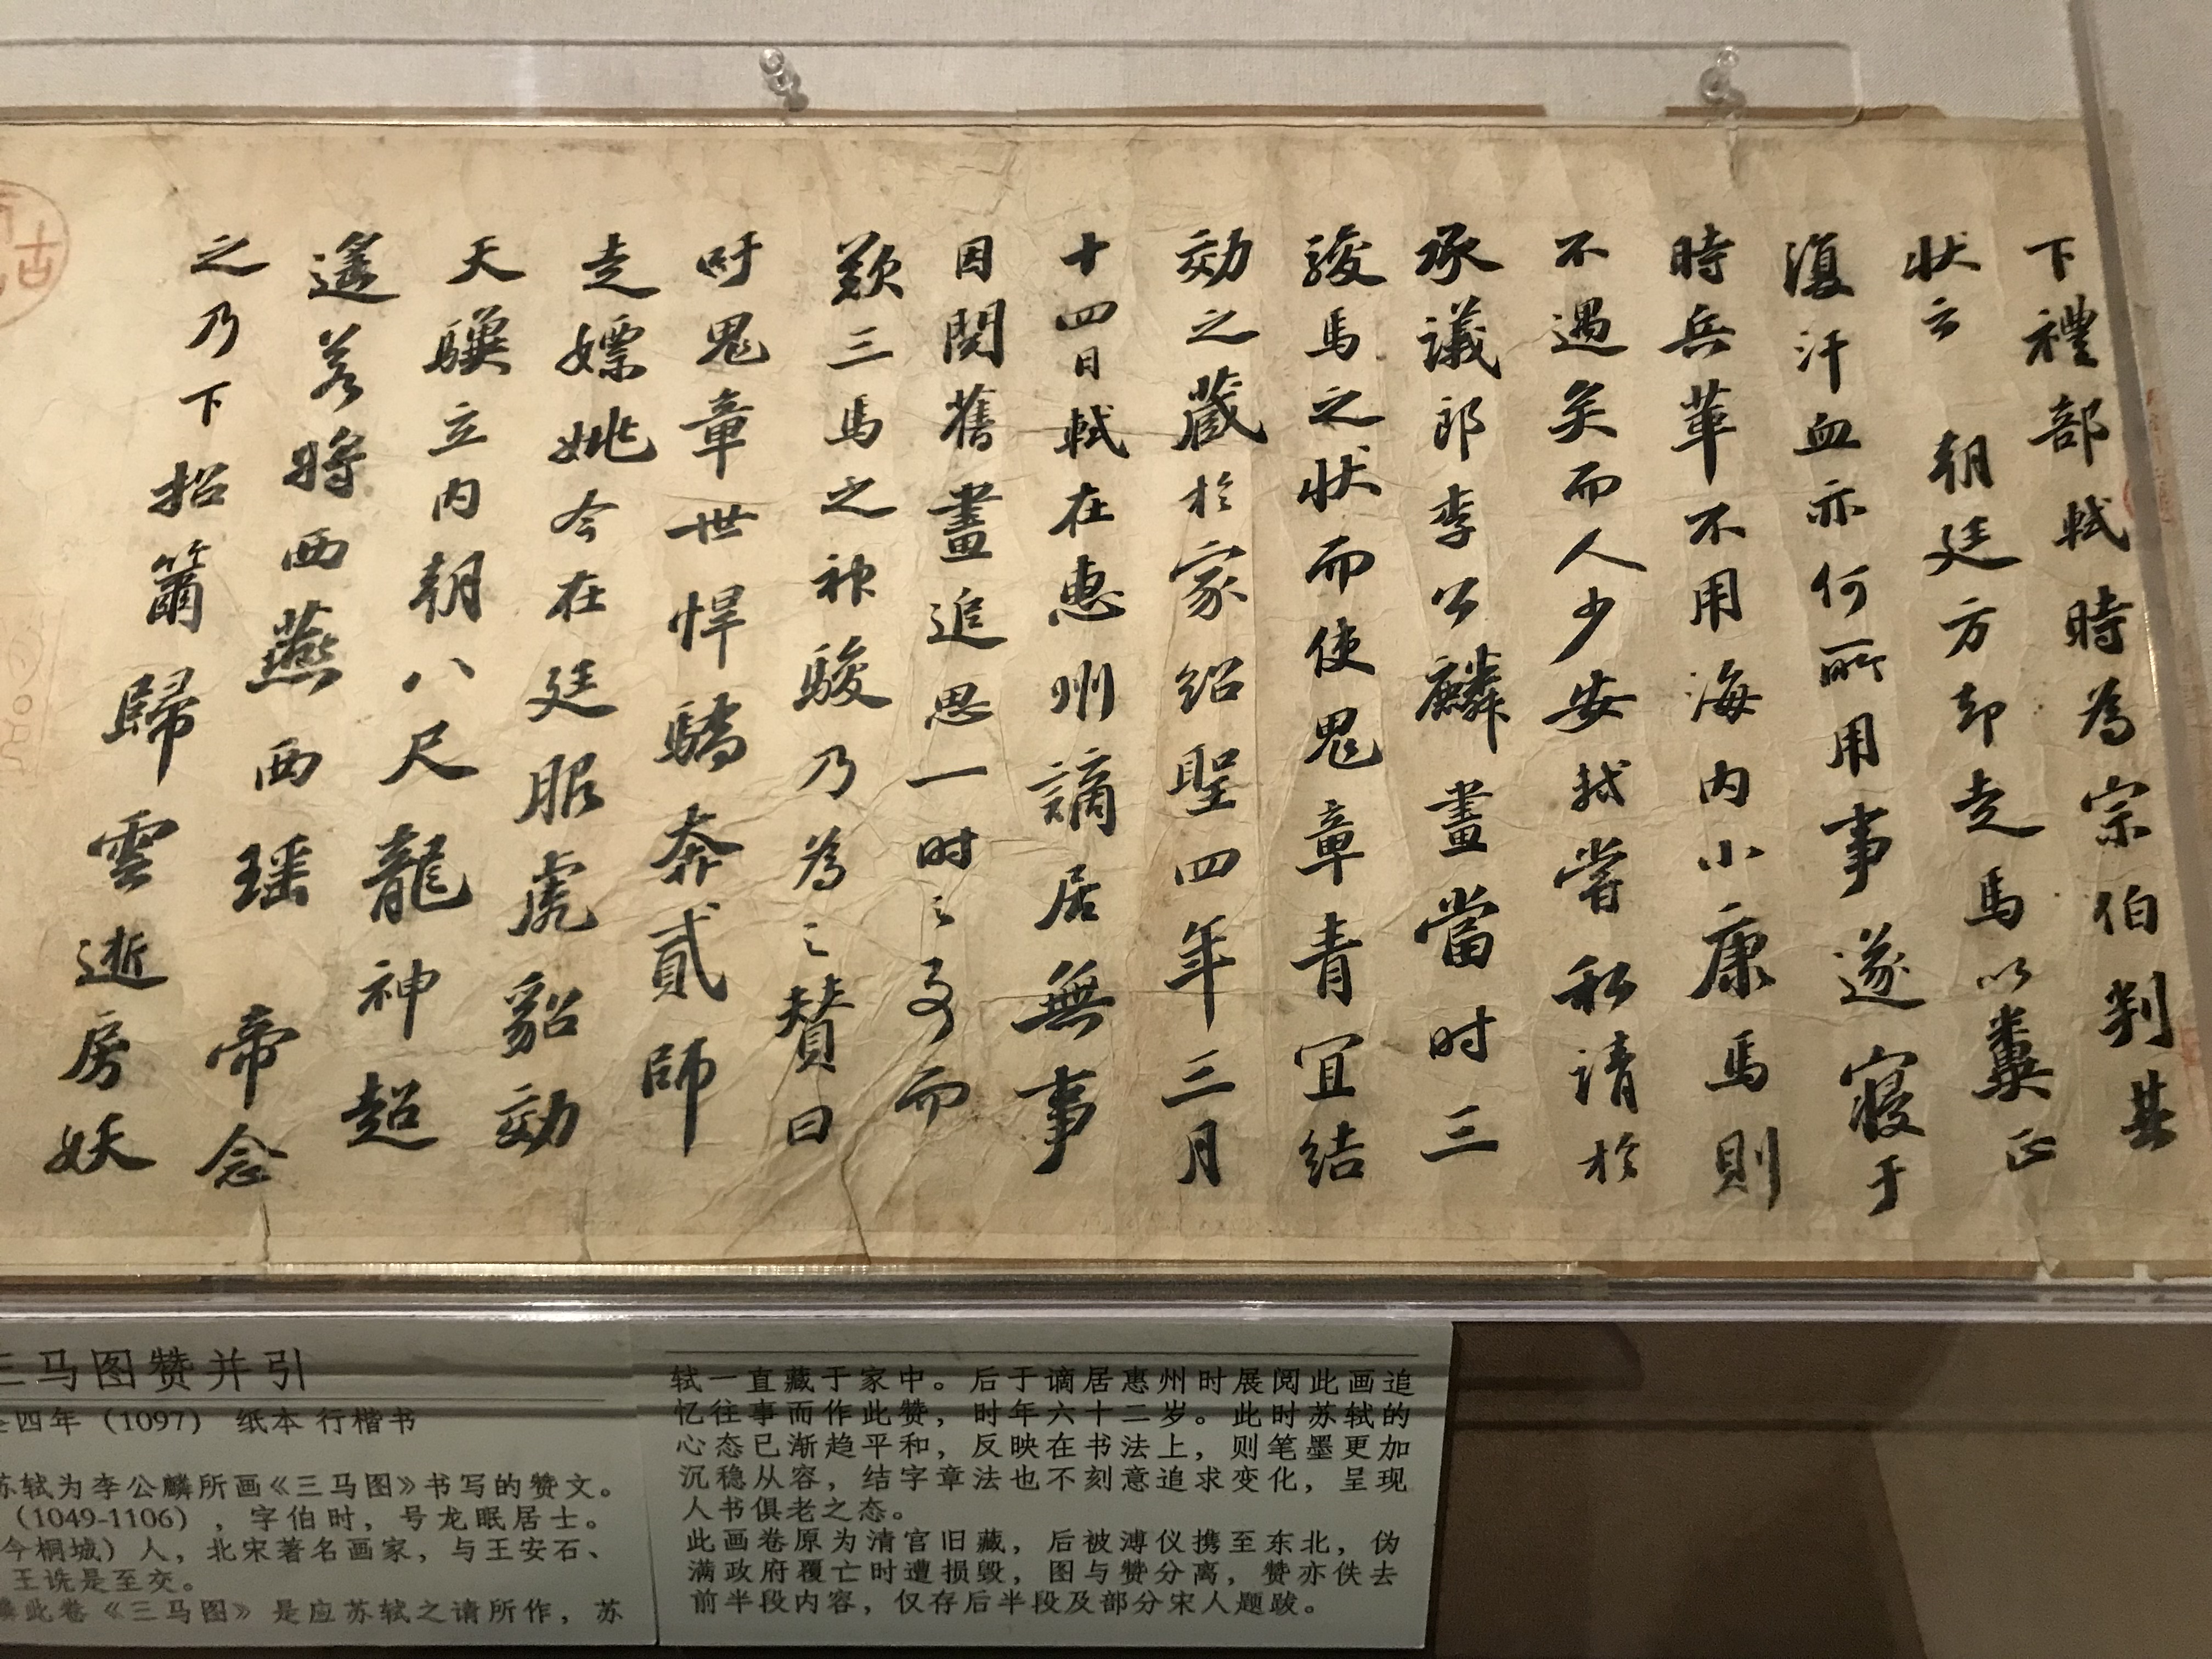 下禮部軾時為宗伯判其
状云 朝廷方却走馬以糞正
復汗血亦何所用事遂寝于
時兵革不用海内小康馬則
不遇矣而人少安軾嘗私請於
承議郎李公麟畫當时三
駿馬之状而使鬼章青宜结
効之蔵於家绍聖四年三月
十四日軾在惠州謫居無事
因閱舊畫追思一时之事而
歎三馬之神駿乃為之賛曰
吁鬼章世悍驕奔貳師
走嫖姚今在廷服虎貂効
天驥立内朝八尺龍神超
遙若將西燕西瑶 帝念
之乃下招籋歸雲逝房妖
古
三马图赞并引
四年（1097） 纸本 行楷书
苏轼为李公麟所画《三马图》书写的赞文。
（1049-1106），字伯时，号龙眠居士。
今桐城）人，北宋著名画家，与王安石、
王诜是至交。
麟此卷《三马图》是应苏轼之请所作，苏
轼一直藏于家中。后于谪居惠州时展阅此画追
忆往事而作此赞，时年六十二岁。此时苏轼的
心态已渐趋平和，反映在书法上，则笔墨更加
沉稳从容，结字章法也不刻意追求变化，呈现
人书俱老之态。
此画卷原为清宫旧藏，后被溥仪携至东北，伪
满政府覆亡时遭损毁，图与赞分离，赞亦佚去
前半段内容，仅存后半段及部分宋人题跋。